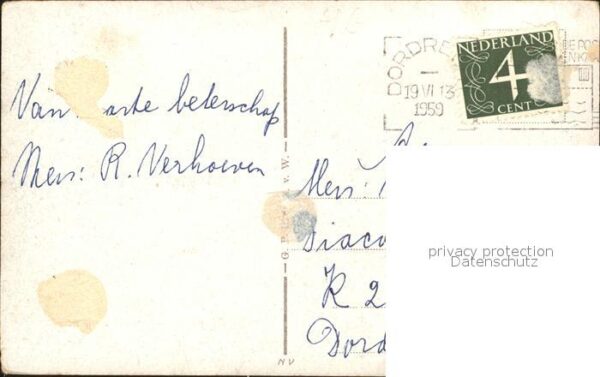 Van harte beterschap
Mevr: R. Verhoeven
DORDRE
19 VI 13
1959
NEDERLAND
4
CENT
Mevr:
Diaco
K 2
Dord
v. W.
NV
privacy protection
Datenschutz